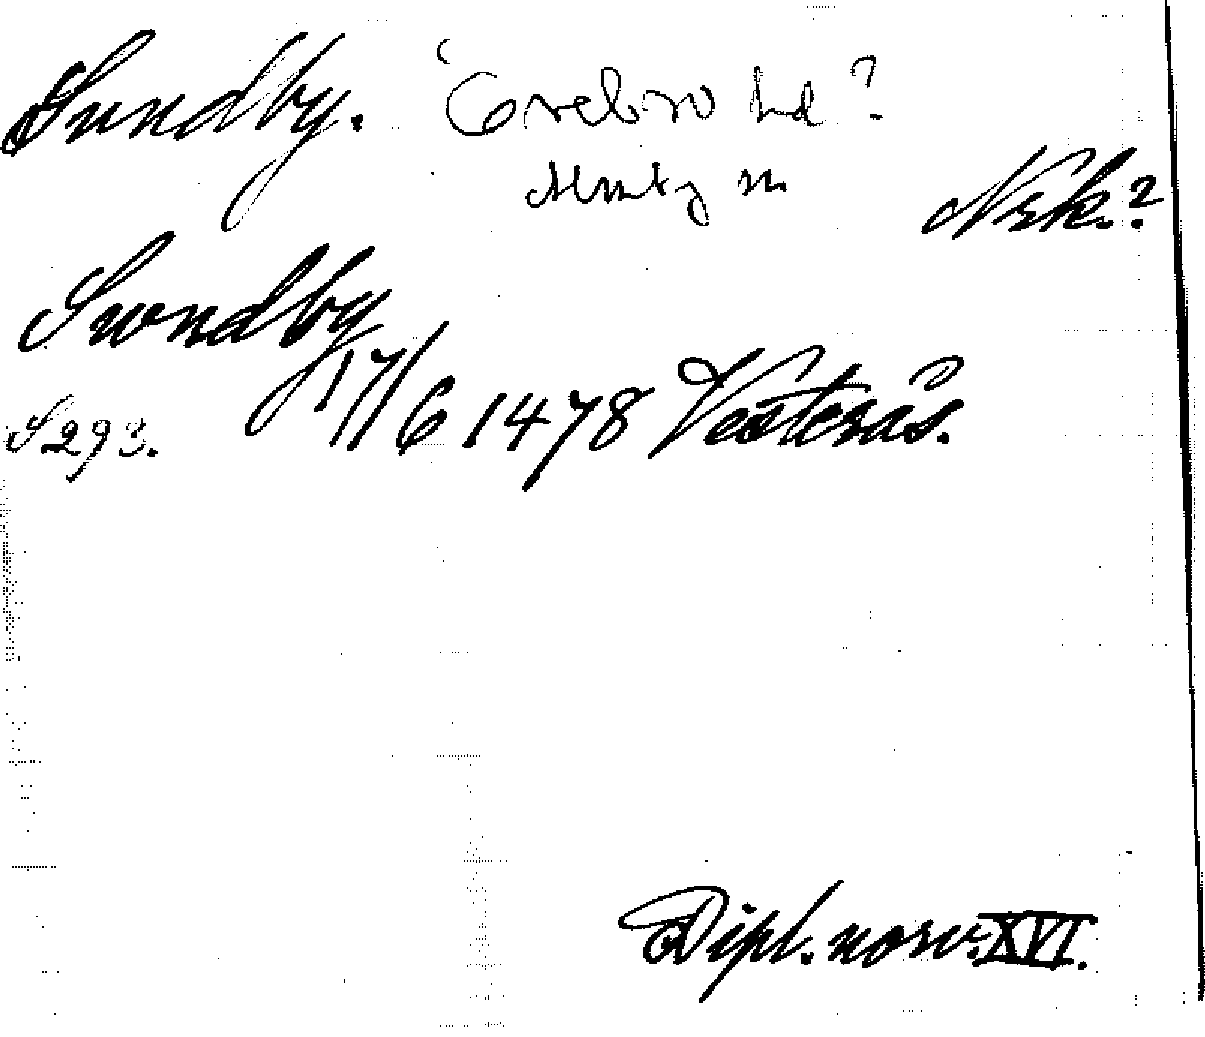 Sundby. Örebro hd?
Nrk.?
Swndby
17/6 1478 Vesterås.
S 293.
Dipl. norv. XVI.